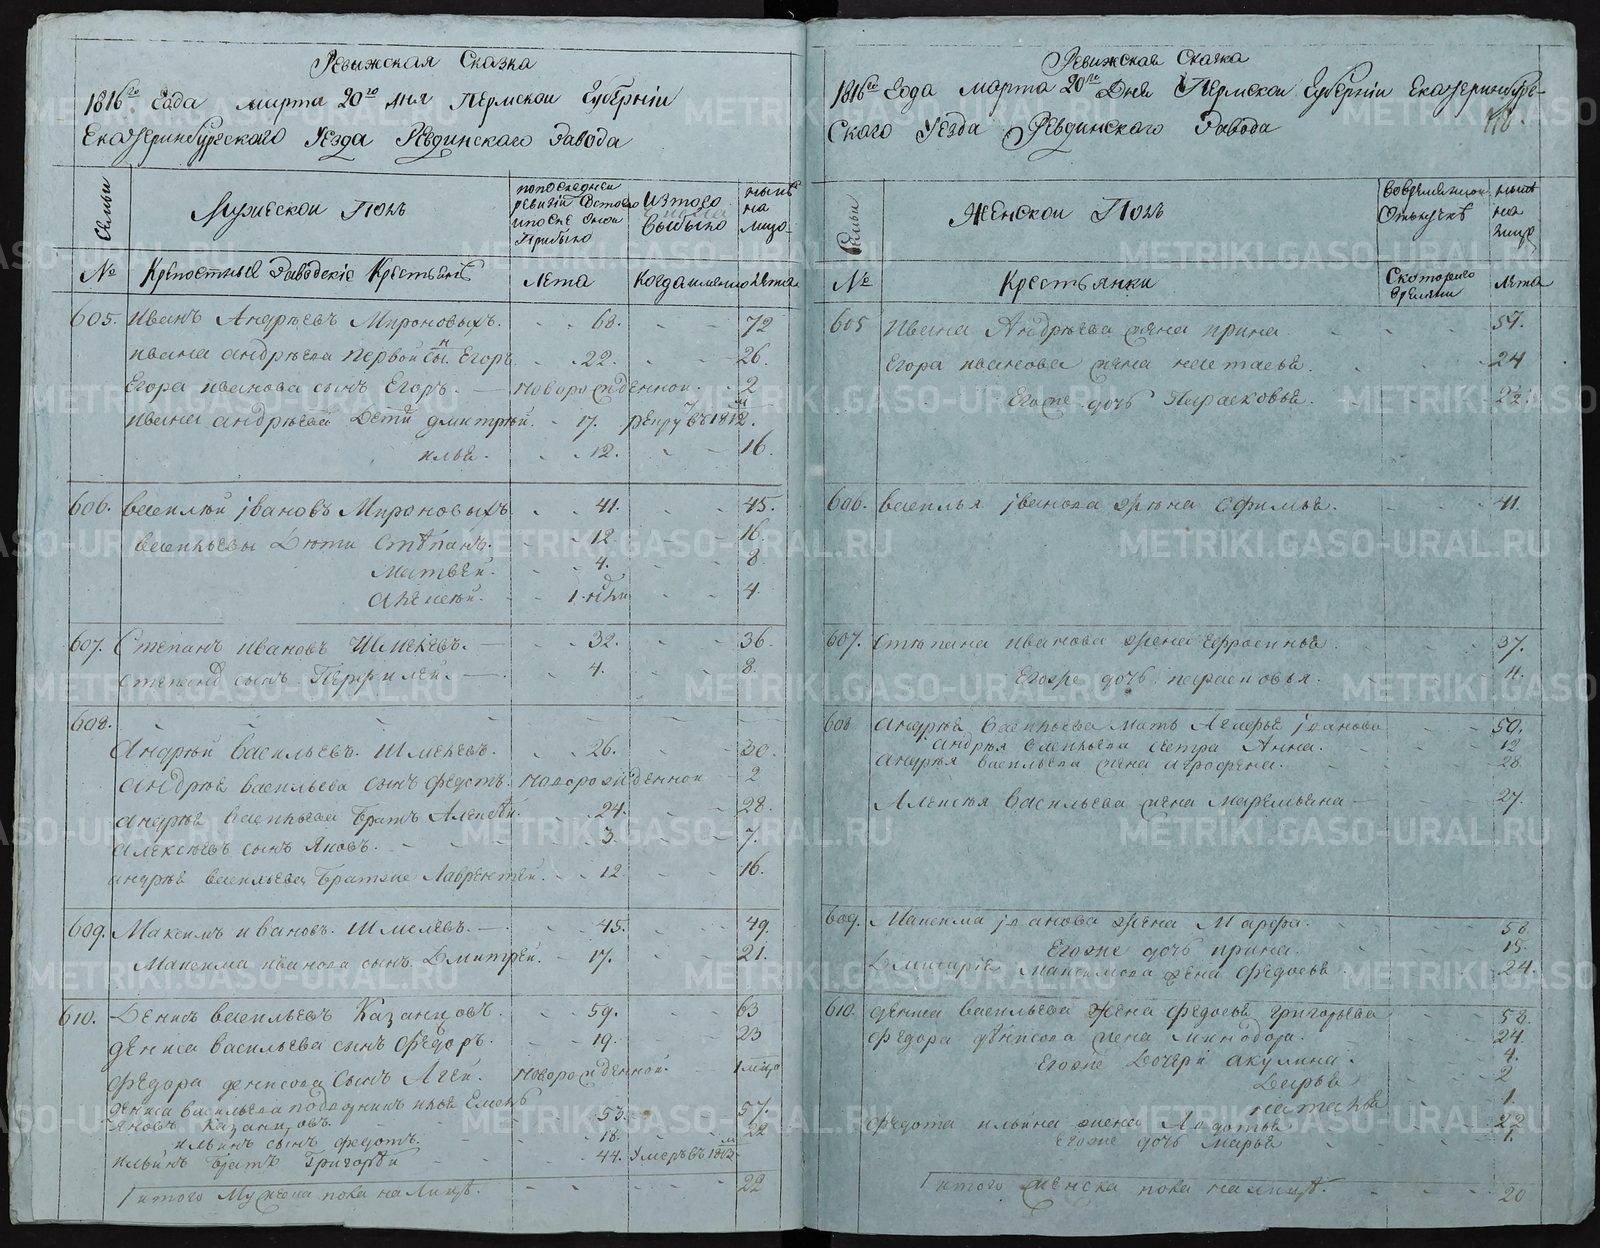 Ревижская Сказка
1816го Года марта 20го дня Пермской Губернiи
Екатеринбургского Уезда Ревдинского Завода
Семьи
Мужеской Полъ
попоследней ревизiи Состояло ипосле оной Прибыло
Изтого Выбыло
нынѣ на лицо
№
Крепостные Заводскiе Крестьянѣ
Лета
Когда именно
Лета
605. Иванъ Андрѣевъ Мироновыхъ. 68. 72
ивана андрѣева первой сынъ Егоръ 22. 26.
Егора иванова сынъ Егоръ. новорожденной. 2
ивана андрѣева Дети дмитрѣй. 17. рекру въ 1812.
илья. 12. 16.
606. василѣй iвановъ Мироновыхъ 41. 45.
васильевы Дѣти Стѣпанъ. 12 16.
Матвѣй. 4. 8
Алексѣй. 1. 4.
607. Степанъ ивановъ Шмелевъ. 32. 36.
степана сынъ Перфилей. 4. 8.
608.
Андрѣй васильевъ Шмелевъ. 26. 30.
андрѣя васильева сынъ федотъ. новорожденной 2
андрѣя васильева Братъ Алексѣй. 24. 28.
Алексѣевъ сынъ Яковъ. 3. 7.
андрѣя васильева Братже Лаврентей. 12 16.
609. Максимъ ивановъ Шмелевъ. 45. 49.
Максима иванова сынъ Дмитрей. 17. 21.
610. Денисъ васильевъ Казанцовъ. 59. 63
дениса васильева сынъ Федоръ. 19. 23
Федора денисова Сынъ Агей. новорожденной. 1 мцо
дениса васильева
Яковъ Казанцовъ 53. 57.
ильинъ сынъ федотъ. 18. 22
ильинъ Братъ Григорѣй 44. Умеръ въ 1812
итого Мужеска пола налицѣ. 22
Ревижская Сказка
1816го Года марта 20го Дня Пермской Губернiи Екатеринбург-
ского Уезда Ревдинского Завода
118
Семьи
Женской Полъ
вовременной Отлучкѣ
нынѣ на лицо
№
Крестьянки
Скоторого времени
Лета
605 Ивана Андрѣева жена ирина 57.
Егора иванова жена настасья. 24
Егоже дочь Парасковья. 2
606. василья iванова жѣна Офимья. 41
607. Стѣпана иванова жена Ефросинья. 37.
Егоже дочь парасковья. 11.
608 андрѣя васильева мать Агафья iванова 59.
андрѣя васильева сестра Анна. 12
андрѣя васильева жена агрофена. 28
Алексѣя васильева жена маремьяна 27.
609. Максима iванова жена Марфа. 50.
Егоже дочь ирина. 15.
Дмитрия максимова жена федосья. 24.
610. дениса васильева жена федосья григорьева 58.
Федора денисова жена минодора. 24.
Егоже Дочери акулина. 4.
Дарья 2
наталья 1.
федота ильина жена Авдотья 22
Егоже дочь марья 1.
итого женска пола налицѣ. 20
METRIKI.GASO-URAL.RU